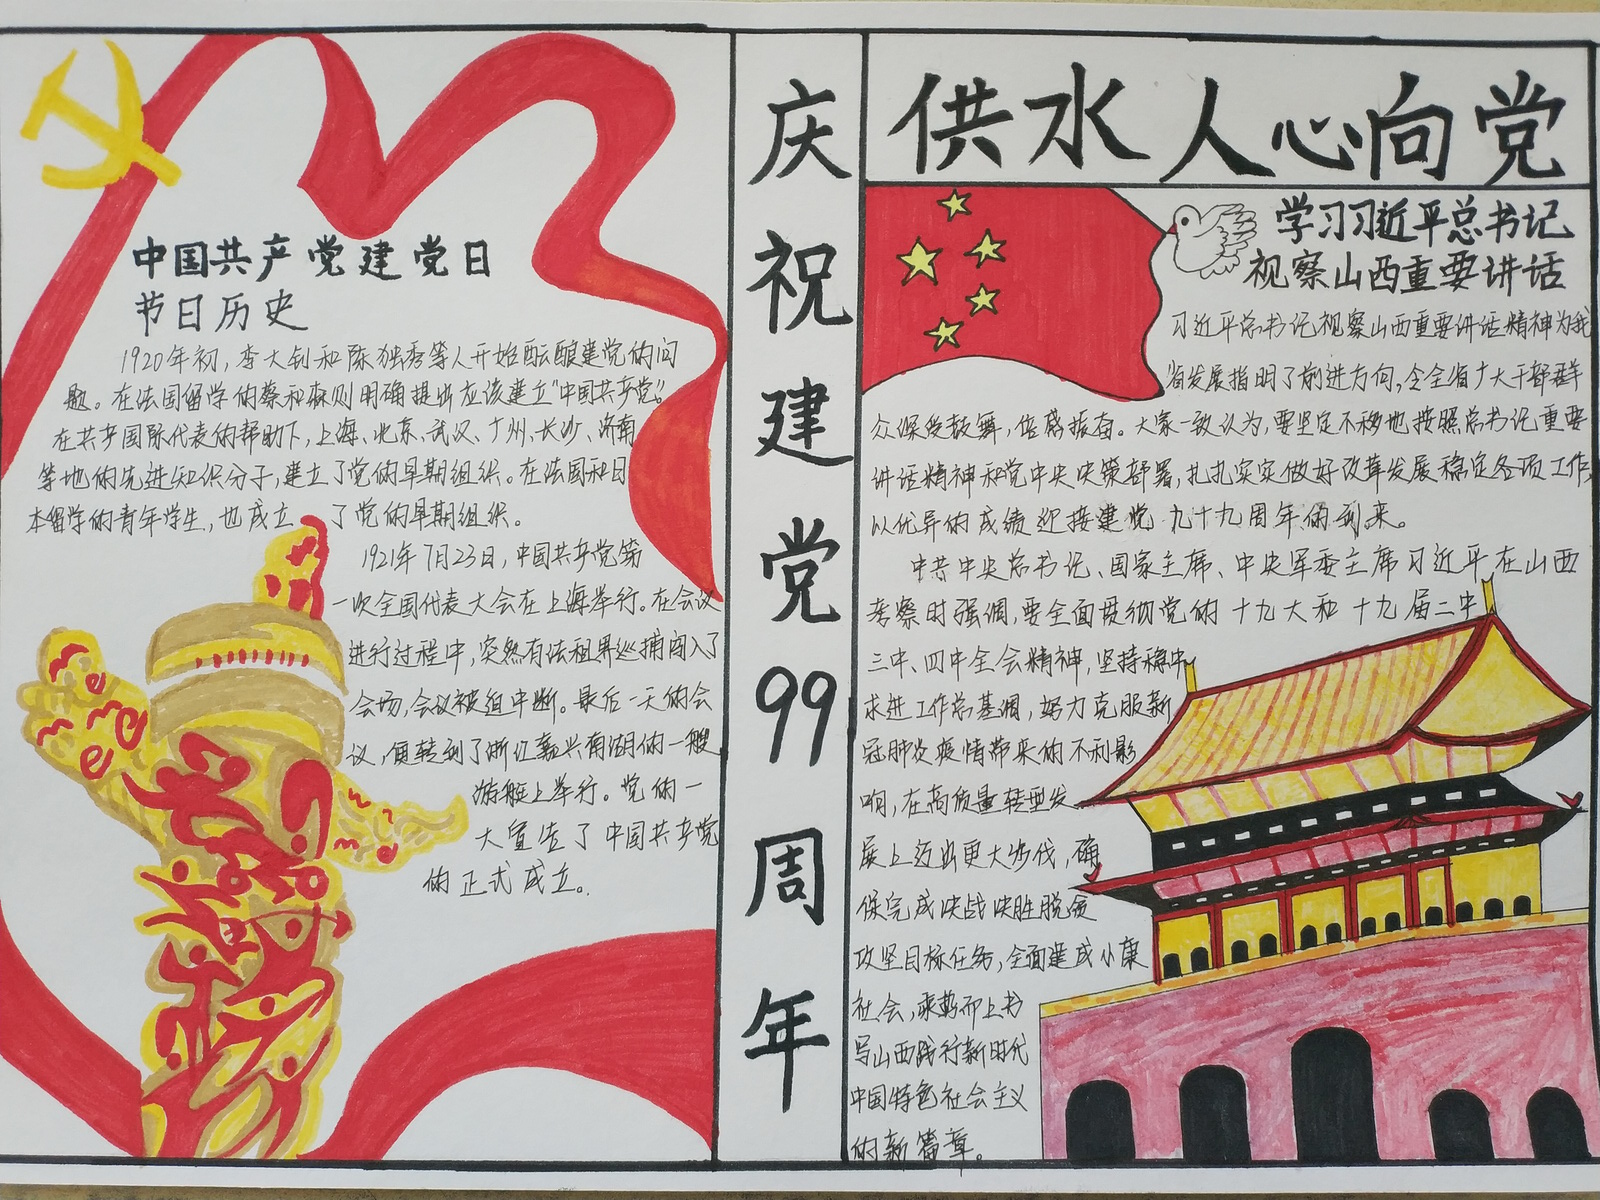 中国共产党建党日
节日历史
1920年初，李大钊和陈独秀等人开始酝酿建党的问
题。在法国留学的蔡和森则明确提出应该建立“中国共产党”。
在共产国际代表的帮助下，上海、北京、武汉、广州、长沙、济南
等地的先进知识分子，建立了党的早期组织。在法国和日
本留学的青年学生，也成立了党的早期组织。
1921年7月23日，中国共产党第
一次全国代表大会在上海举行。在会议
进行过程中，突然有法租界巡捕闯入了
会场，会议被迫中断。最后一天的会
议，便转到了浙江嘉兴南湖的一艘
游艇上举行。党的一
大宣告了中国共产党
的正式成立。
庆祝建党99周年
供水人心向党
学习习近平总书记
视察山西重要讲话
习近平总书记视察山西重要讲话精神为我
省发展指明了前进方向，令全省广大干部群
众深受鼓舞，倍感振奋。大家一致认为，要坚定不移地按照总书记重要
讲话精神和党中央决策部署，扎扎实实做好改革发展稳定各项工作，
以优异的成绩迎接建党九十九周年的到来。
中共中央总书记、国家主席、中央军委主席习近平在山西
考察时强调，要全面贯彻党的十九大和十九届二中
三中、四中全会精神，坚持稳中
求进工作总基调，努力克服新
冠肺炎疫情带来的不利影
响，在高质量转型发
展上迈出更大步伐，确
保完成决战决胜脱贫
攻坚目标任务，全面建成小康
社会，乘势而上书
写山西践行新时代
中国特色社会主义
的新篇章。